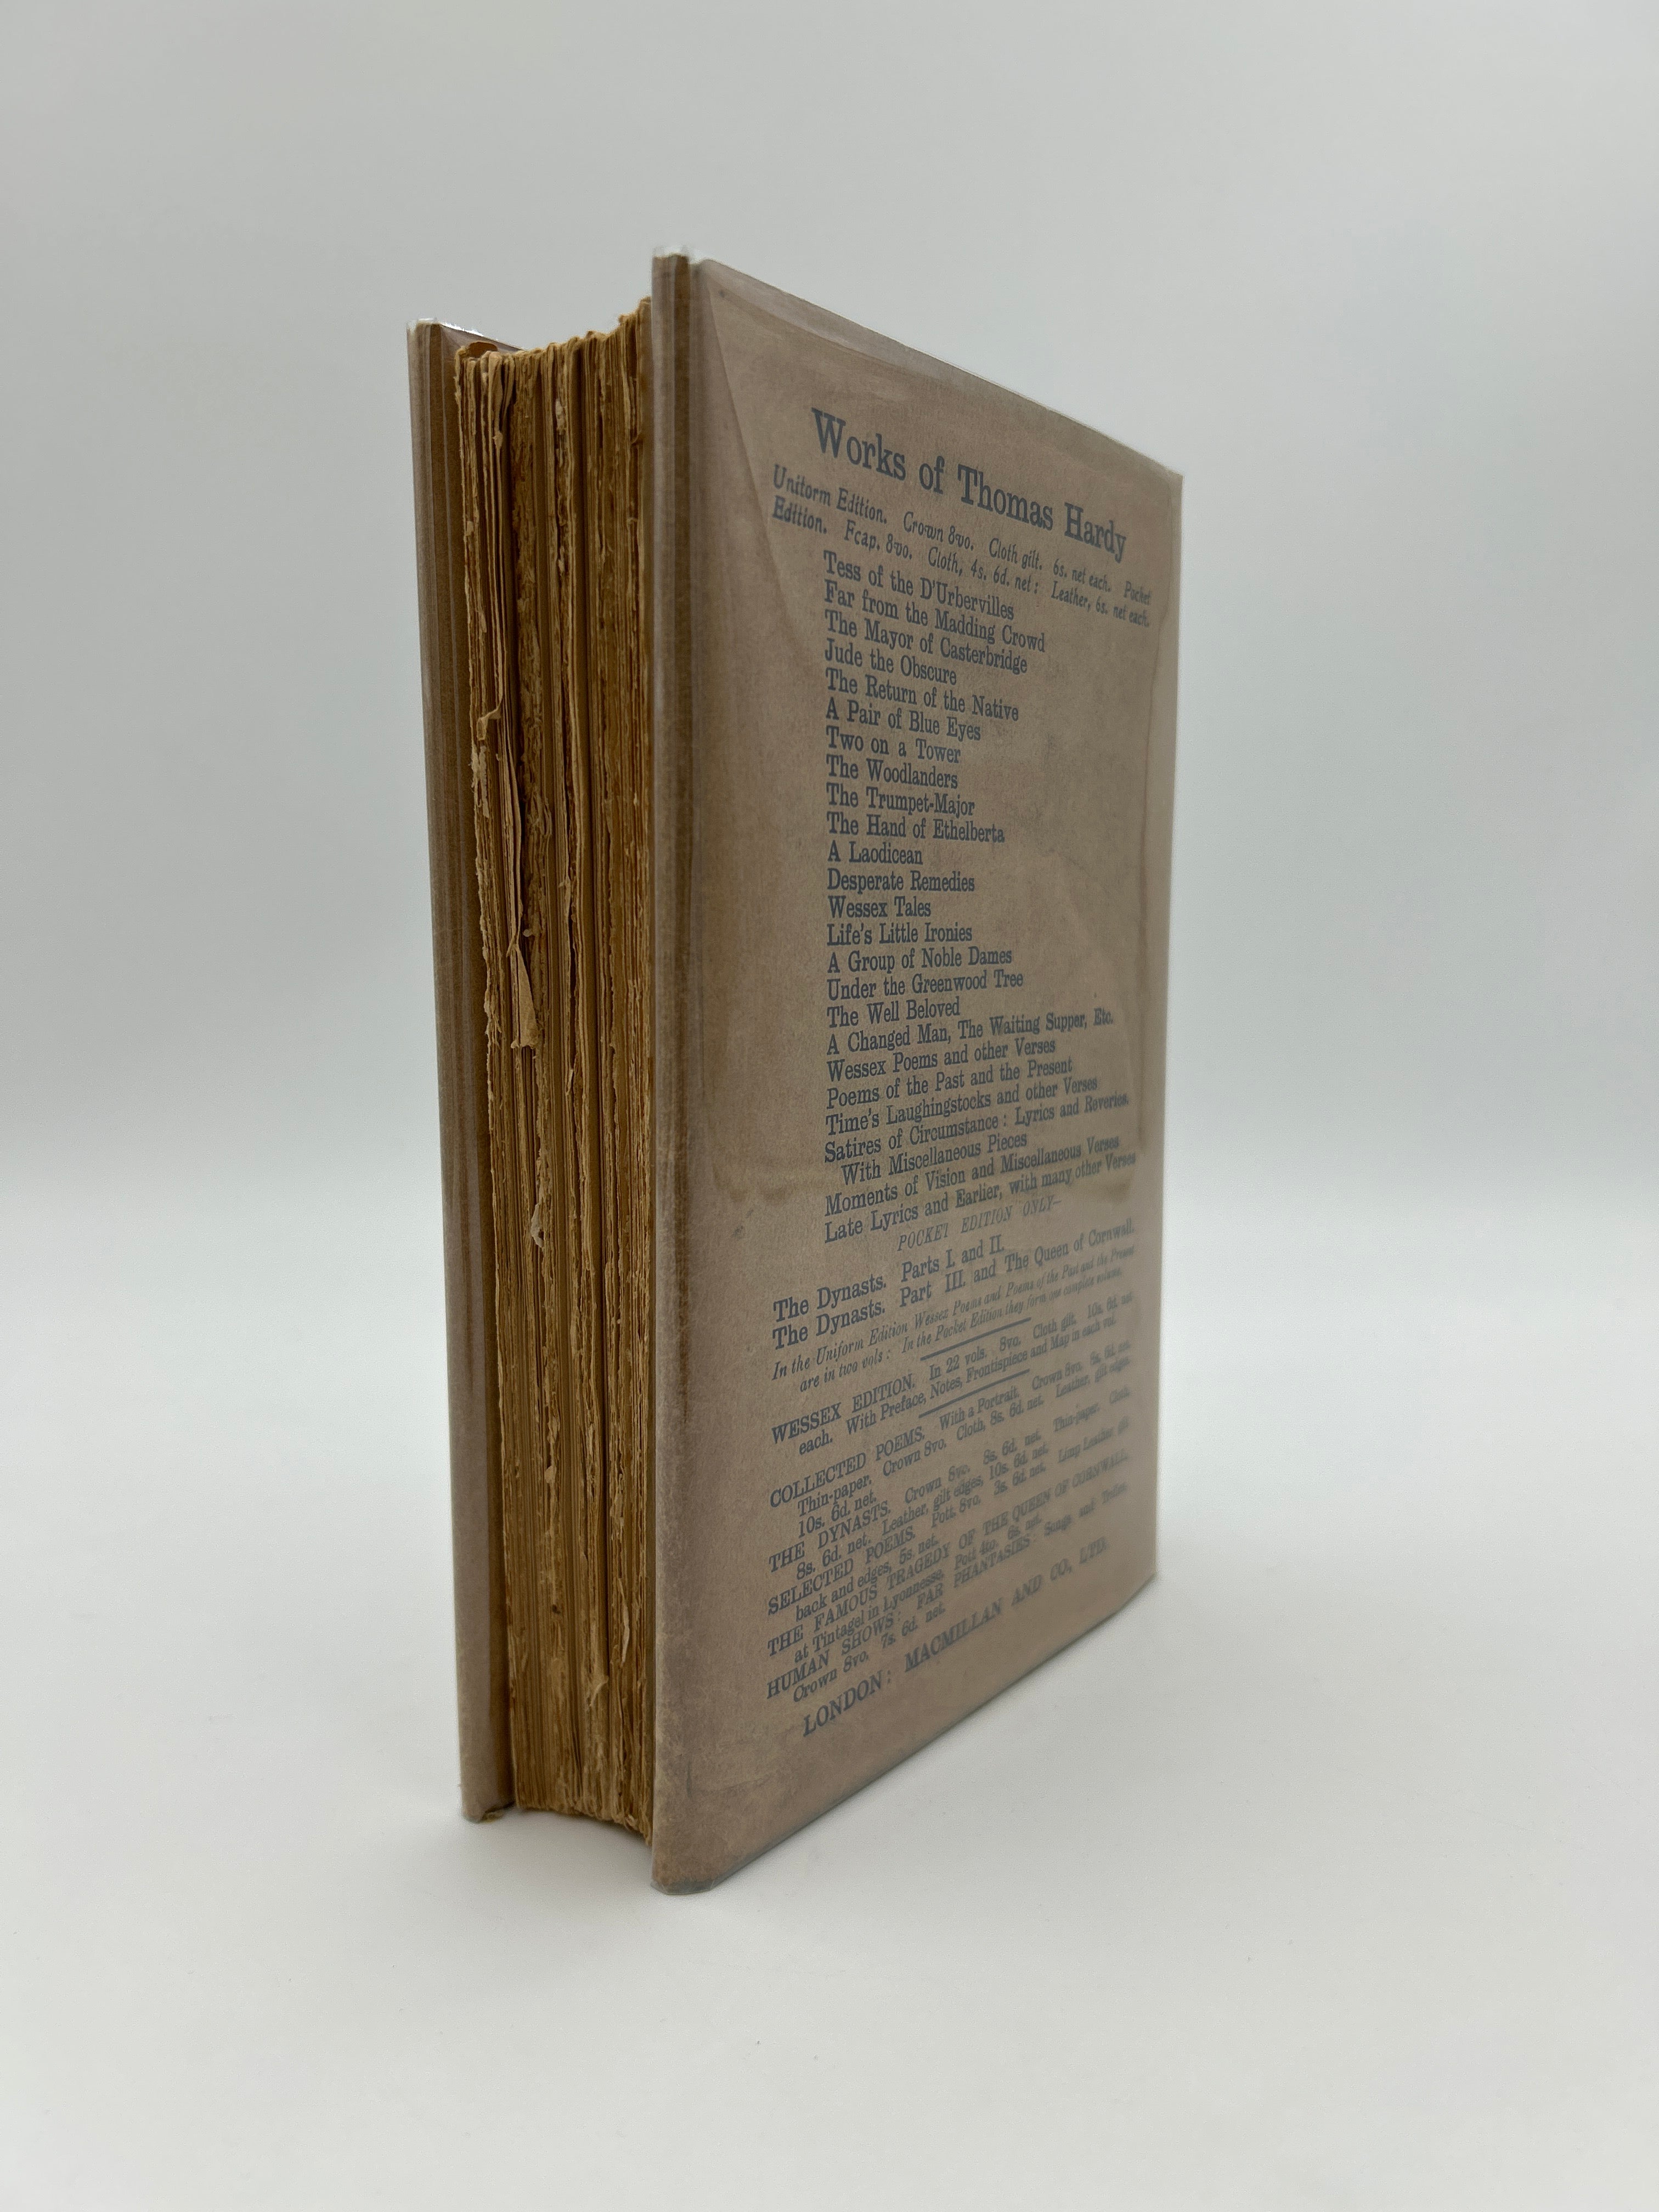 Works of Thomas Hardy
Uniform Edition. Crown 8vo. Cloth gilt. 6s. net each. Pocket
Edition. Fcap. 8vo. Cloth, 4s. 6d. net; Leather, 6s. net each.
Tess of the D'Urbervilles
Far from the Madding Crowd
The Mayor of Casterbridge
Jude the Obscure
The Return of the Native
A Pair of Blue Eyes
Two on a Tower
The Woodlanders
The Trumpet-Major
The Hand of Ethelberta
A Laodicean
Desperate Remedies
Wessex Tales
Life's Little Ironies
A Group of Noble Dames
Under the Greenwood Tree
The Well Beloved
A Changed Man, The Waiting Supper, Etc.
Wessex Poems and other Verses
Poems of the Past and the Present
Time's Laughingstocks and other Verses
Satires of Circumstance: Lyrics and Reveries.
With Miscellaneous Pieces
Moments of Vision and Miscellaneous Verses
Late Lyrics and Earlier, with many other Verses
POCKET EDITION ONLY—
The Dynasts. Parts I. and II.
The Dynasts. Part III. and The Queen of Cornwall.
In the Uniform Edition Wessex Poems and Poems of the Past and the Present
are in two vols: In the Pocket Edition they form one complete volume.
WESSEX EDITION. In 22 vols. 8vo. Cloth gilt. 10s. 6d. net
each. With Preface, Notes, Frontispiece and Map in each vol.
COLLECTED POEMS. With a Portrait. Crown 8vo. 8s. 6d. net.
Thin-paper. Crown 8vo. Cloth, 8s. 6d. net. Leather, gilt edges,
10s. 6d. net.
THE DYNASTS. Crown 8vo. 8s. 6d. net. Thin-paper. Cloth,
8s. 6d. net. Leather, gilt edges, 10s. 6d. net.
SELECTED POEMS. Pott. 8vo. 3s. 6d. net. Limp Leather, gilt
back and edges, 5s. net.
THE FAMOUS TRAGEDY OF THE QUEEN OF CORNWALL
at Tintagel in Lyonnesse. Pott 4to. 6s. net.
HUMAN SHOWS: FAR PHANTASIES: Songs and Trifles.
Crown 8vo. 7s. 6d. net.
LONDON: MACMILLAN AND CO., LTD.